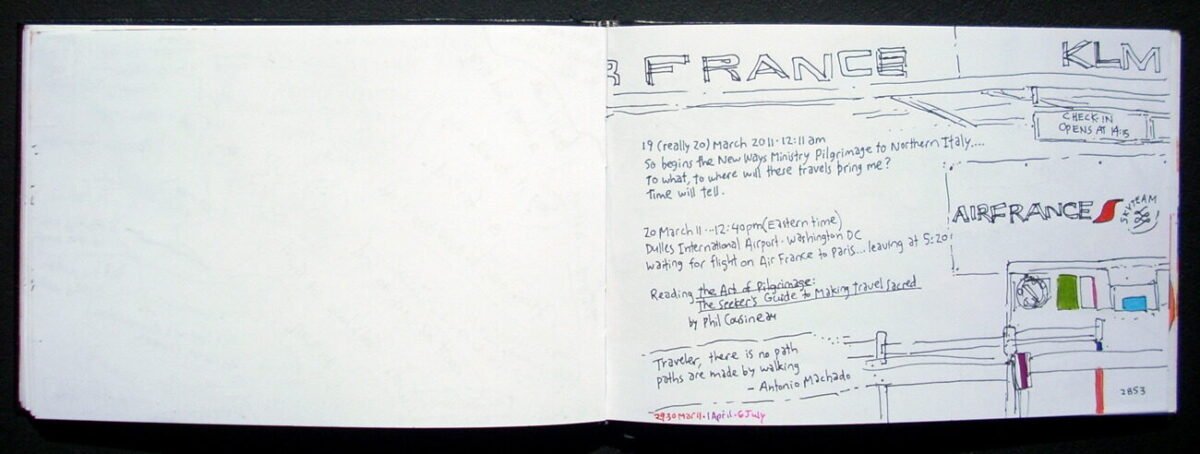 R FRANCE KLM
CHECK-IN
OPENS AT 14:15
19 (really 20) March 2011 · 12:11 am
So begins the New Ways Ministry Pilgrimage to Northern Italy....
To what, to where will these travels bring me?
Time will tell.
AIRFRANCE
SKYTEAM
20 March 11 - 12:40pm (Eastern time)
Dulles International Airport · Washington DC
waiting for flight on Air France to Paris... leaving at 5:20
Reading the Art of Pilgrimage:
The Seeker's Guide to Making travel Sacred
by Phil Cousineau
Traveler, there is no path
paths are made by walking
- Antonio Machado
2853
30 Mar 11 · 1 April · 6 July